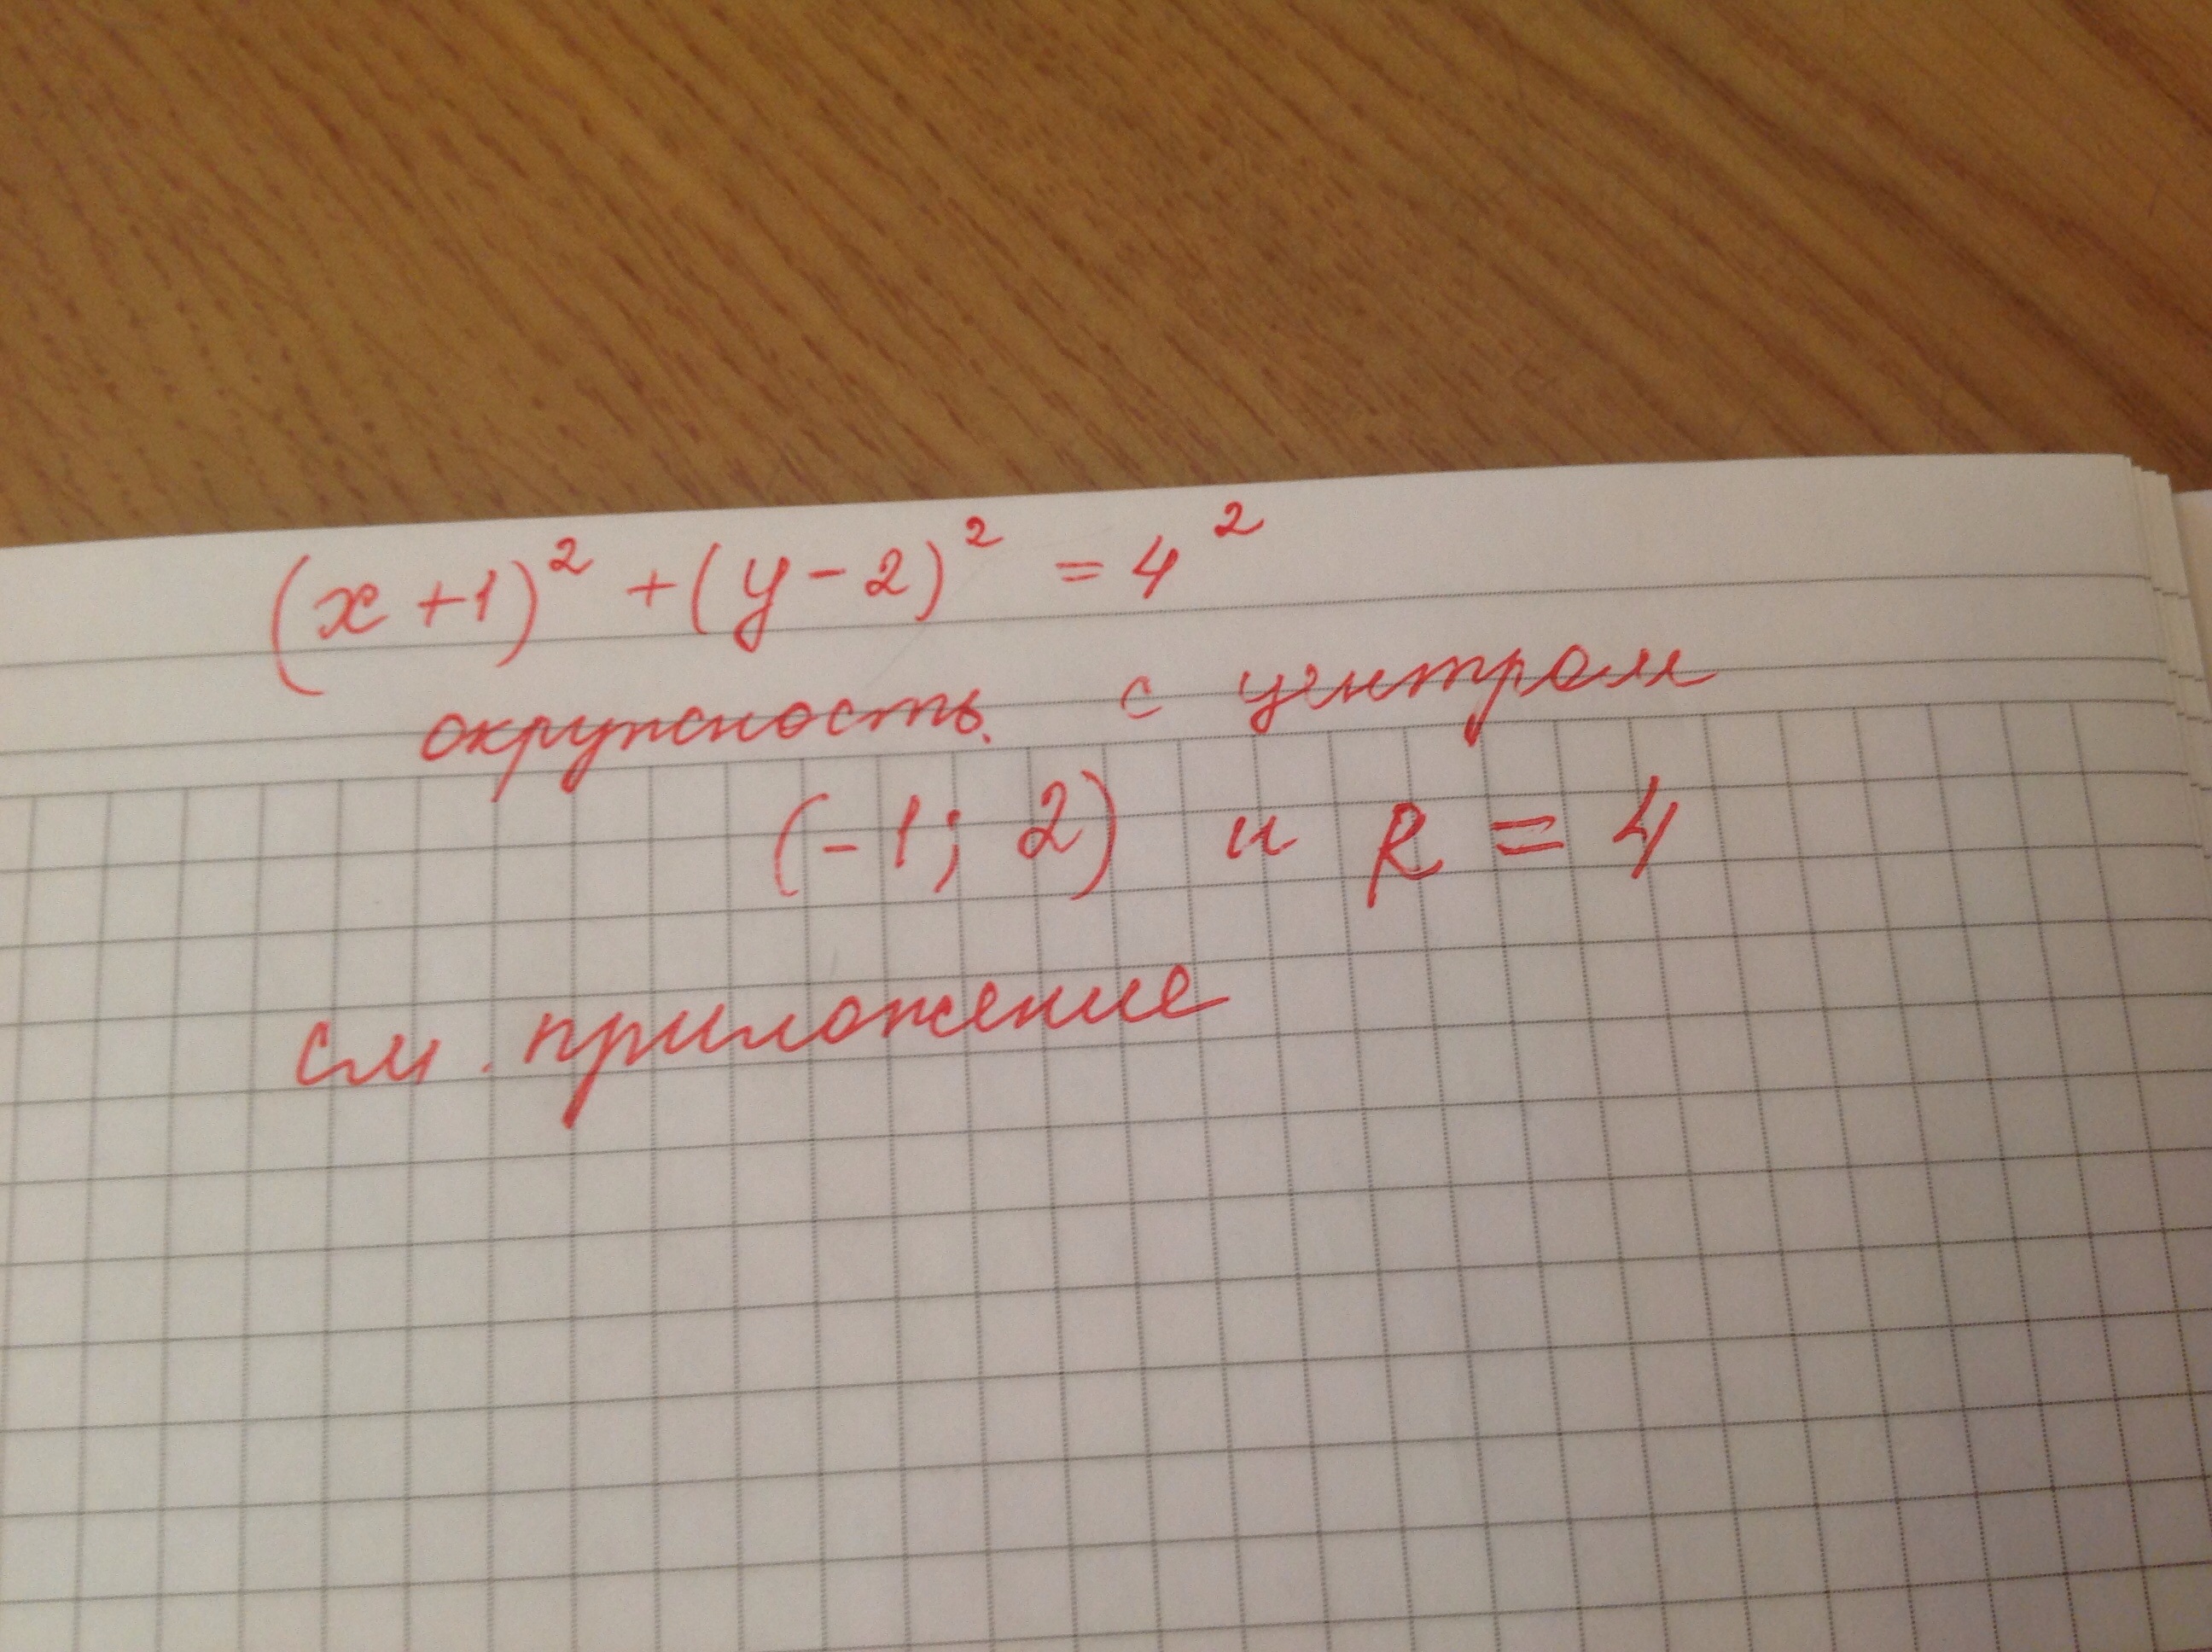 (x+1)² + (y-2)² = 4²
окружность с центром
(-1; 2) и R = 4
см. приложение